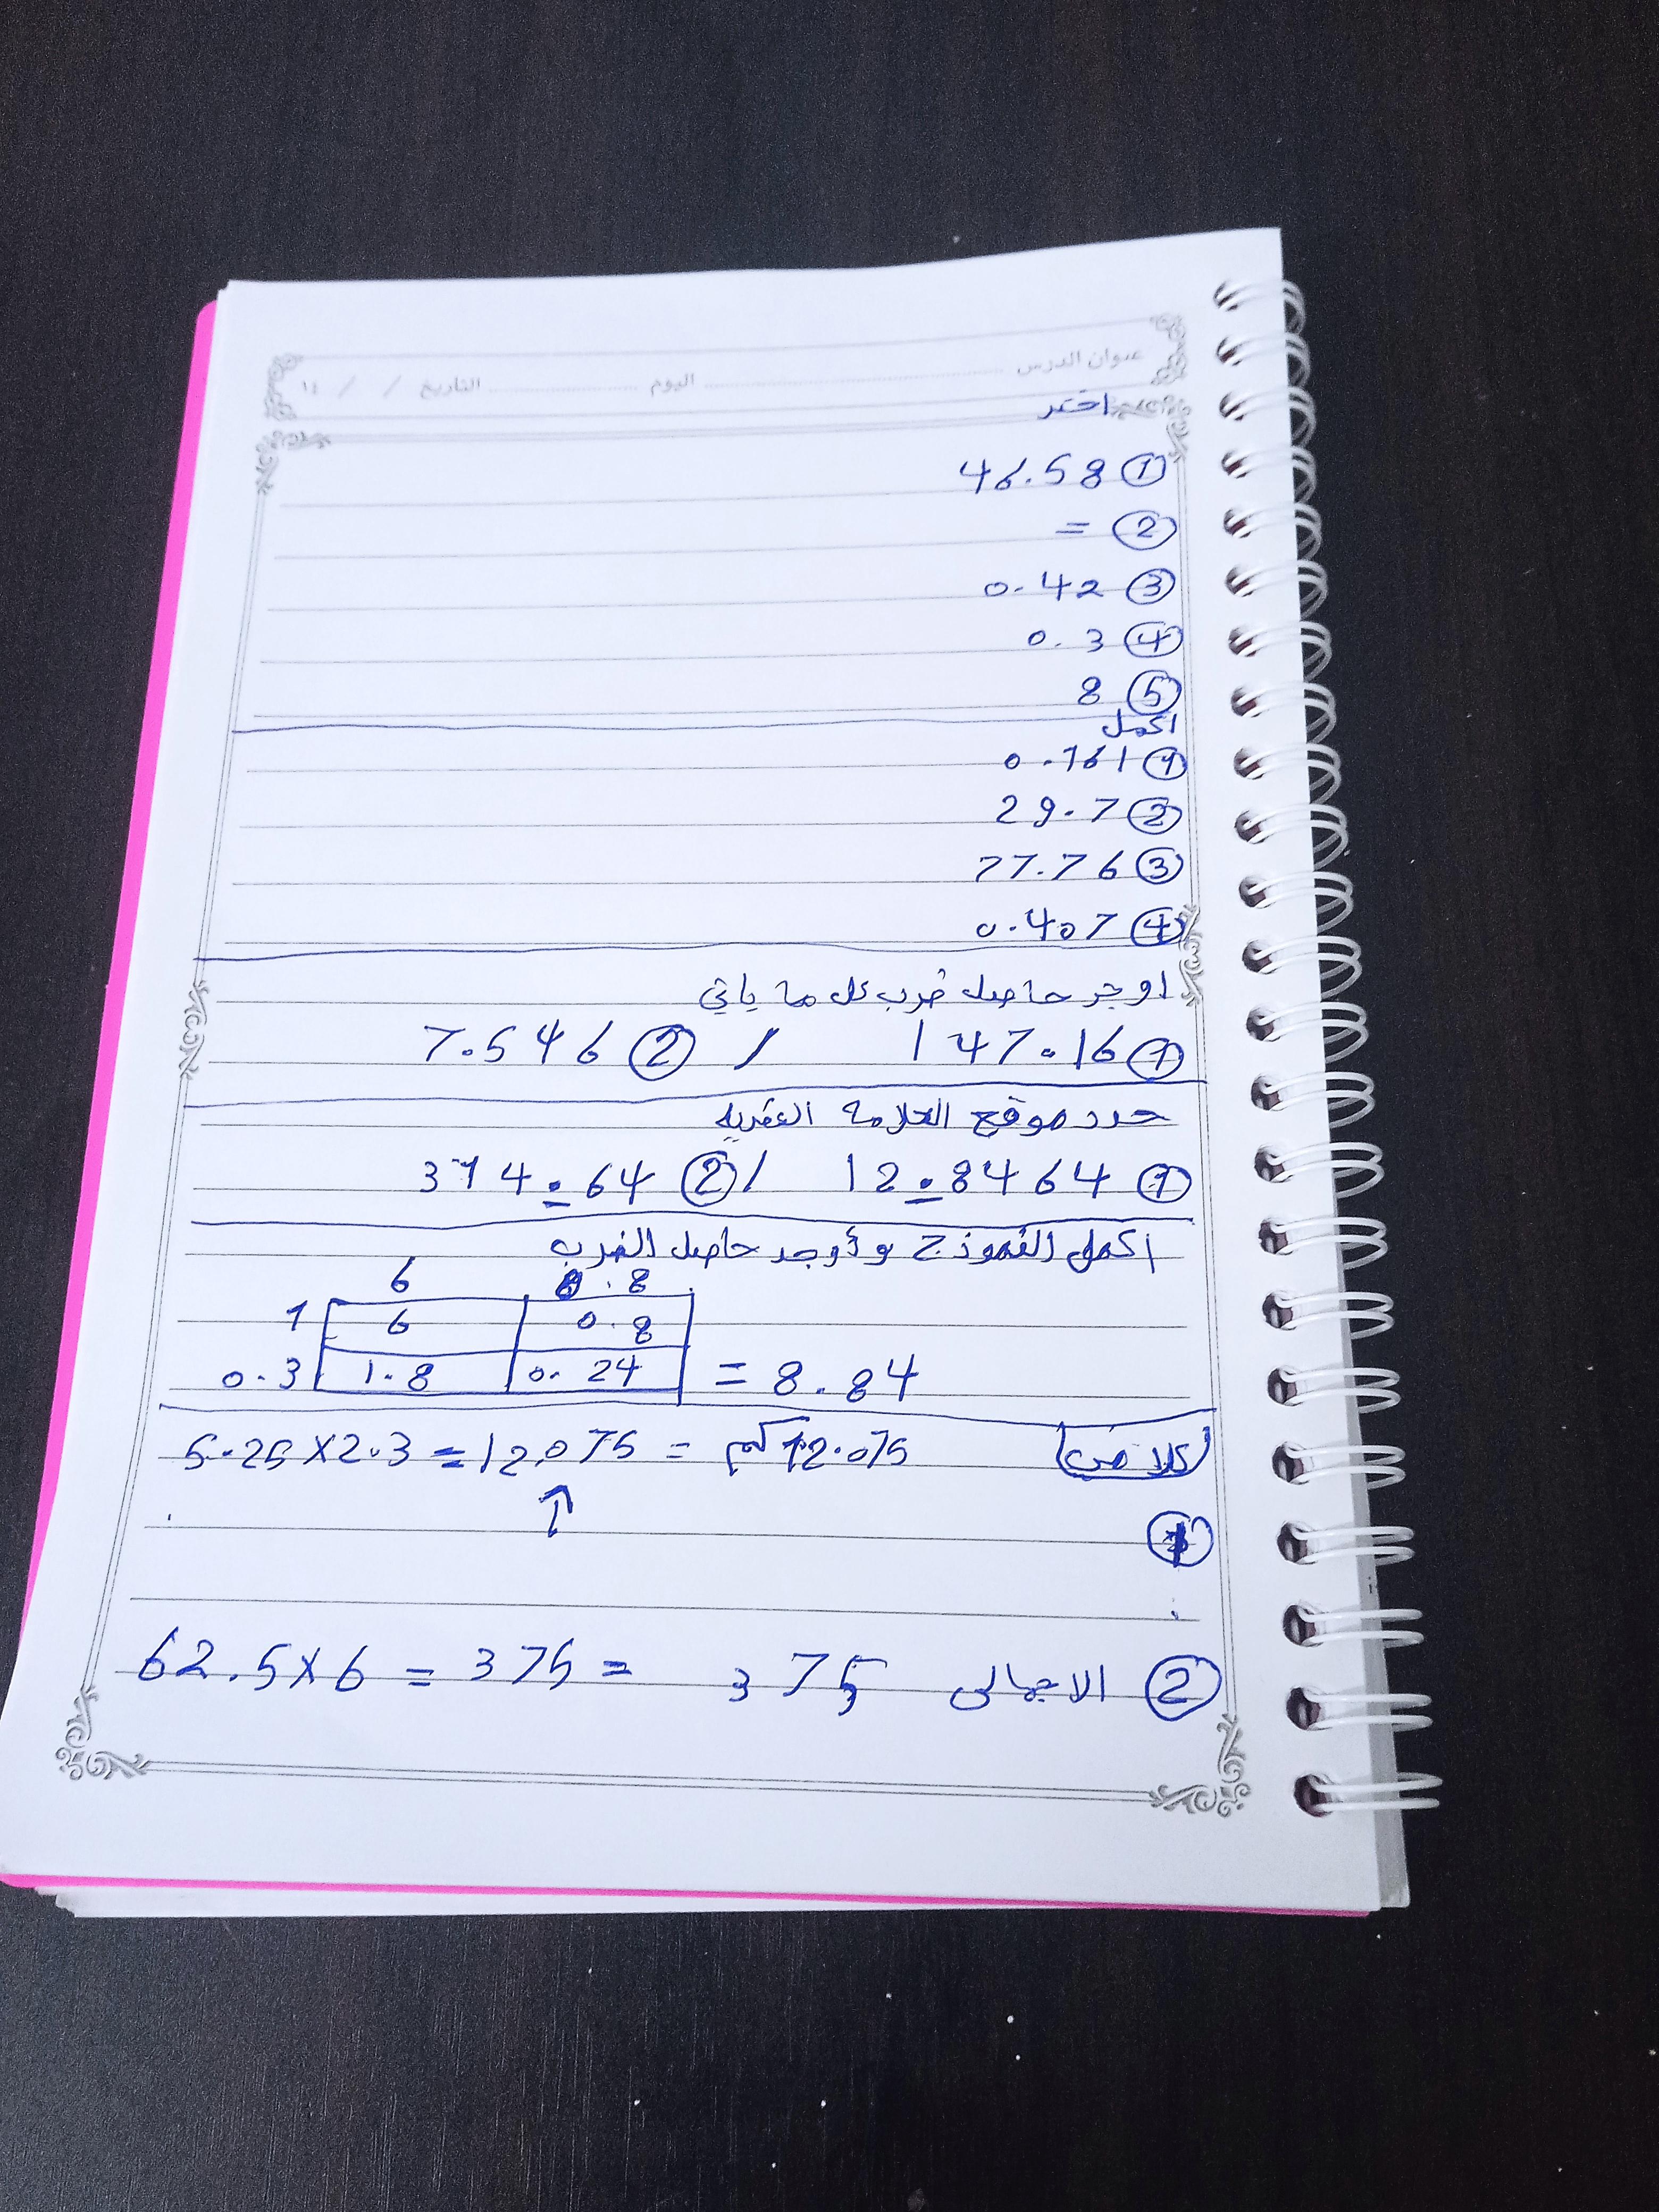 عنوان الدرس ........ اليوم ........ التاريخ / / ١٤
اختر
① 46.58
② =
③ 0.42
④ 0.3
⑤ 8
اكمل
① 0.161
② 29.7
③ 77.76
④ 0.407
اوجد حاصل ضرب كل ما ياتي
① 147.16 / ② 7.546
حدد موقع العلامة العشريه
① 12.8464 / ② 314.64
اكمل النموذج وأوجد حاصل الضرب
6 0.8
1 6 0.8
0.3 1.8 0.24 = 8.84
5.25×2.3=12.075 = كم 12.075
↑
①
② الاجمالى 62.5×6 = 375 = 375